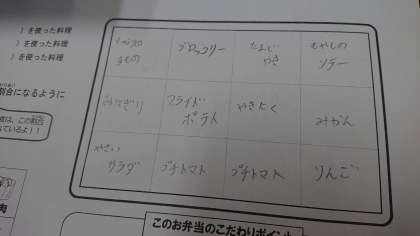 ）を使った料理
）を使った料理
）を使った料理
割合になるように
は、この割合
ているよ！！
きもの
ブロッコリー
たまご
やき
もやしの
ソテー
おにぎり
フライド
ポテト
やきにく
みかん
やさい
サラダ
プチトマト
プチトマト
りんご
肉
このお弁当のこだわりポイント